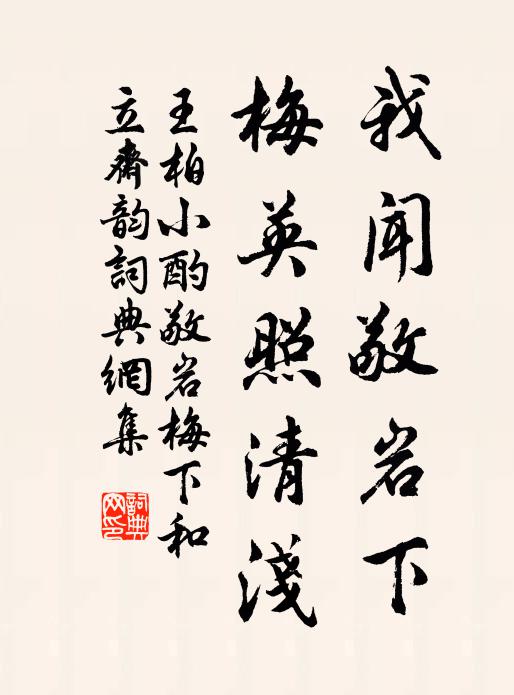 我闻敬岩下
梅英照清淺
王柏小酌敬岩梅下和
立齋韵詞典網集
詞典网印